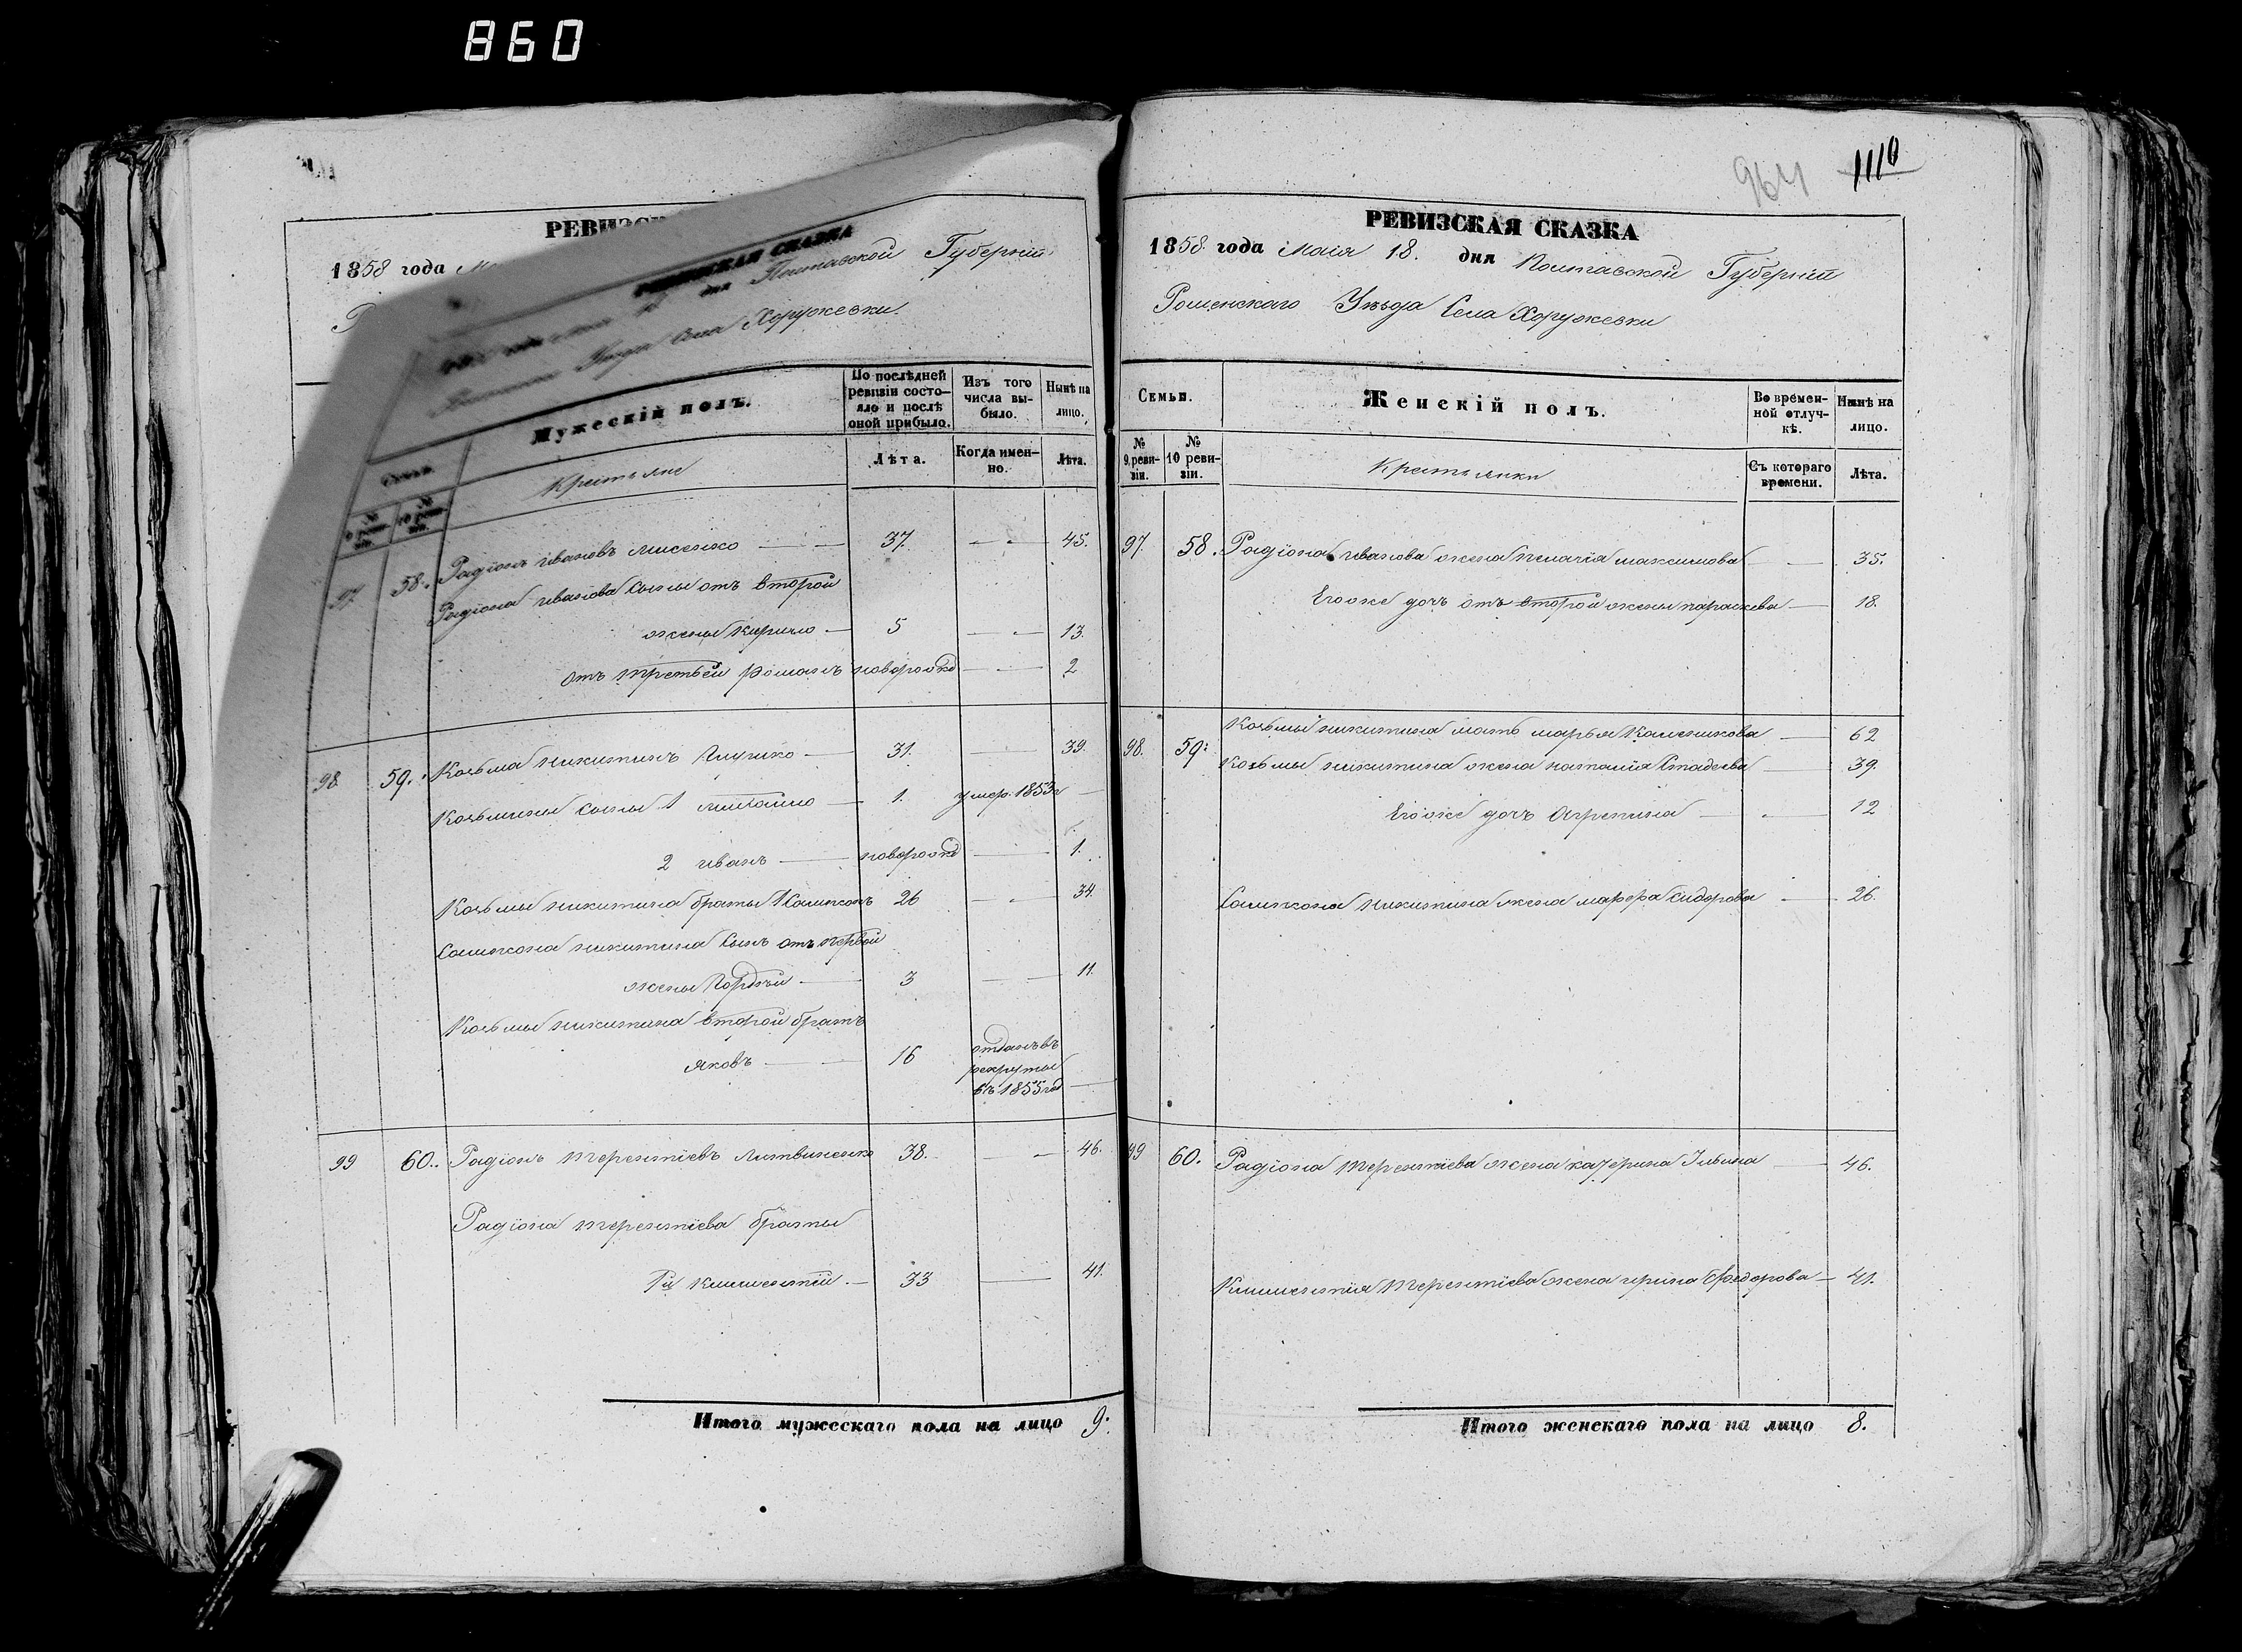 860
РЕВИЗСК
1858 года
РЕВИЗСКАЯ СКАЗКА
дня Полтавской Губерніи
Уѣзда Села Хоружевки.
Семьи.
Мужескій полъ.
По послѣдней ревизіи состояло и послѣ оной прибыло.
Изъ того числа выбыло.
Нынѣ на лицо.
№ 9 ревизіи.
№ 10 ревизіи.
Крестьяне
Лѣта.
Когда именно.
Лѣта.
97 58. Радіонъ ивановъ лисенко — 37. — 45.
Радіона иванова сыны отъ второй
жены Кирило — 5 — 13.
отъ третьей романъ новорожд — 2
98 59. Козьма никитинъ Глушко — 31. — 39.
Козьмины сыны 1 — 1. умер. 1853 г —
2 иванъ — новорожд — 1.
Козьмы никитина браты 1 Сампсонъ 26 — 34.
Сампсона никитина сынъ отъ первой
жены Кордѣй — 3 — 11.
Козьмы никитина второй братъ
Яковъ — 16 отданъ въ рекруты въ 1855 год —
99 60. Радіонъ терентіевъ литвиненко 38. — 46.
Радіона терентіева браты
Клементій. — 33 — 41.
Итого мужескаго пола на лицо 9.
964 1110
РЕВИЗСКАЯ СКАЗКА
1858. года Маія 18. дня Полтавской Губерніи
Роменскаго Уѣзда Села Хоружевки
Семьи.
Женскій полъ.
Во временной отлучкѣ.
Нынѣ на лицо.
№ 9 ревизіи.
№ 10 ревизіи.
Крестьянки
Съ котораго времени.
Лѣта.
97. 58. Радіона иванова жена пелагія максимова — 35.
Егоже дочь отъ второй жены параскева — 18.
98. 59. Козьмы никитина мать марья — 62
Козьмы никитина жена наталія — 39.
Егоже дочь Агрепина — 12
Сампсона никитина жена марфа сидорова — 26.
99 60. Радіона терентіева жена катерина Ільина — 46.
Клементія терентіева жена ирина федорова — 41.
Итого женскаго пола на лицо 8.